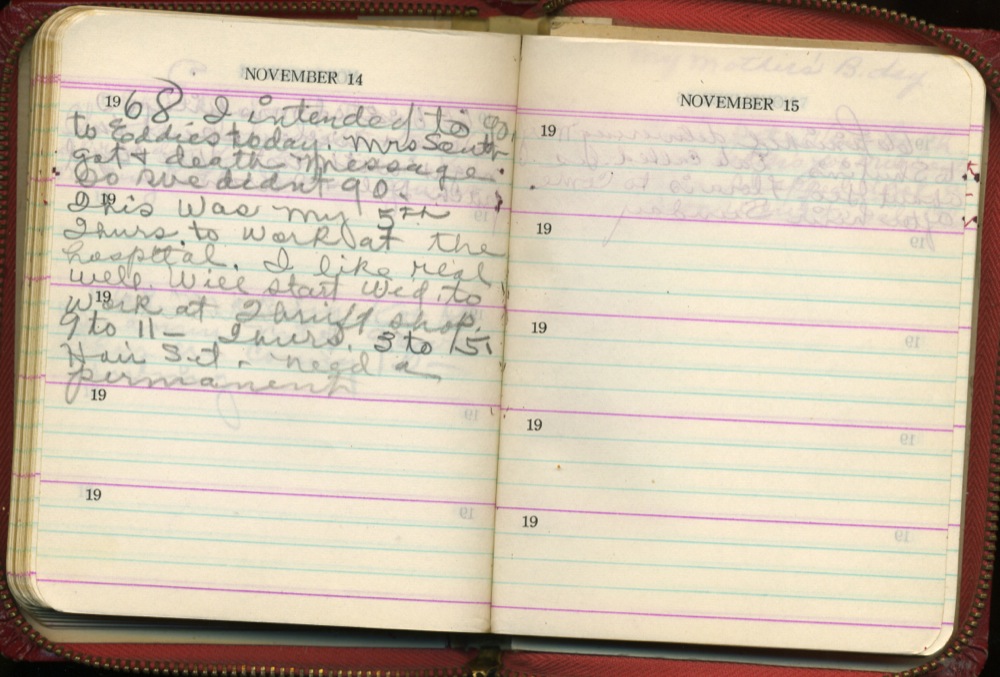 NOVEMBER 14
1968 I intended to go
to Eddies today. Mrs South
got + death message.
So we didnt go.
19
This was my 5th
Thurs. to work at the
hospital. I like real
well. Will start Wed. to
19
work at Thrift shop.
9 to 11 - Thurs. 3 to 5.
Hair Set. need a
permanent
19
19
NOVEMBER 15
19
19
19
19
19
My Mother's B.day